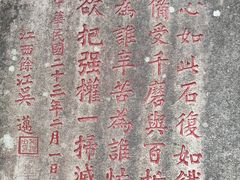 心如此石復如鐵
備受千磨與百折
為誰辛苦為誰忙
欲把强權一掃滅
中華民國二十三年二月一日
江西徐江吳邁